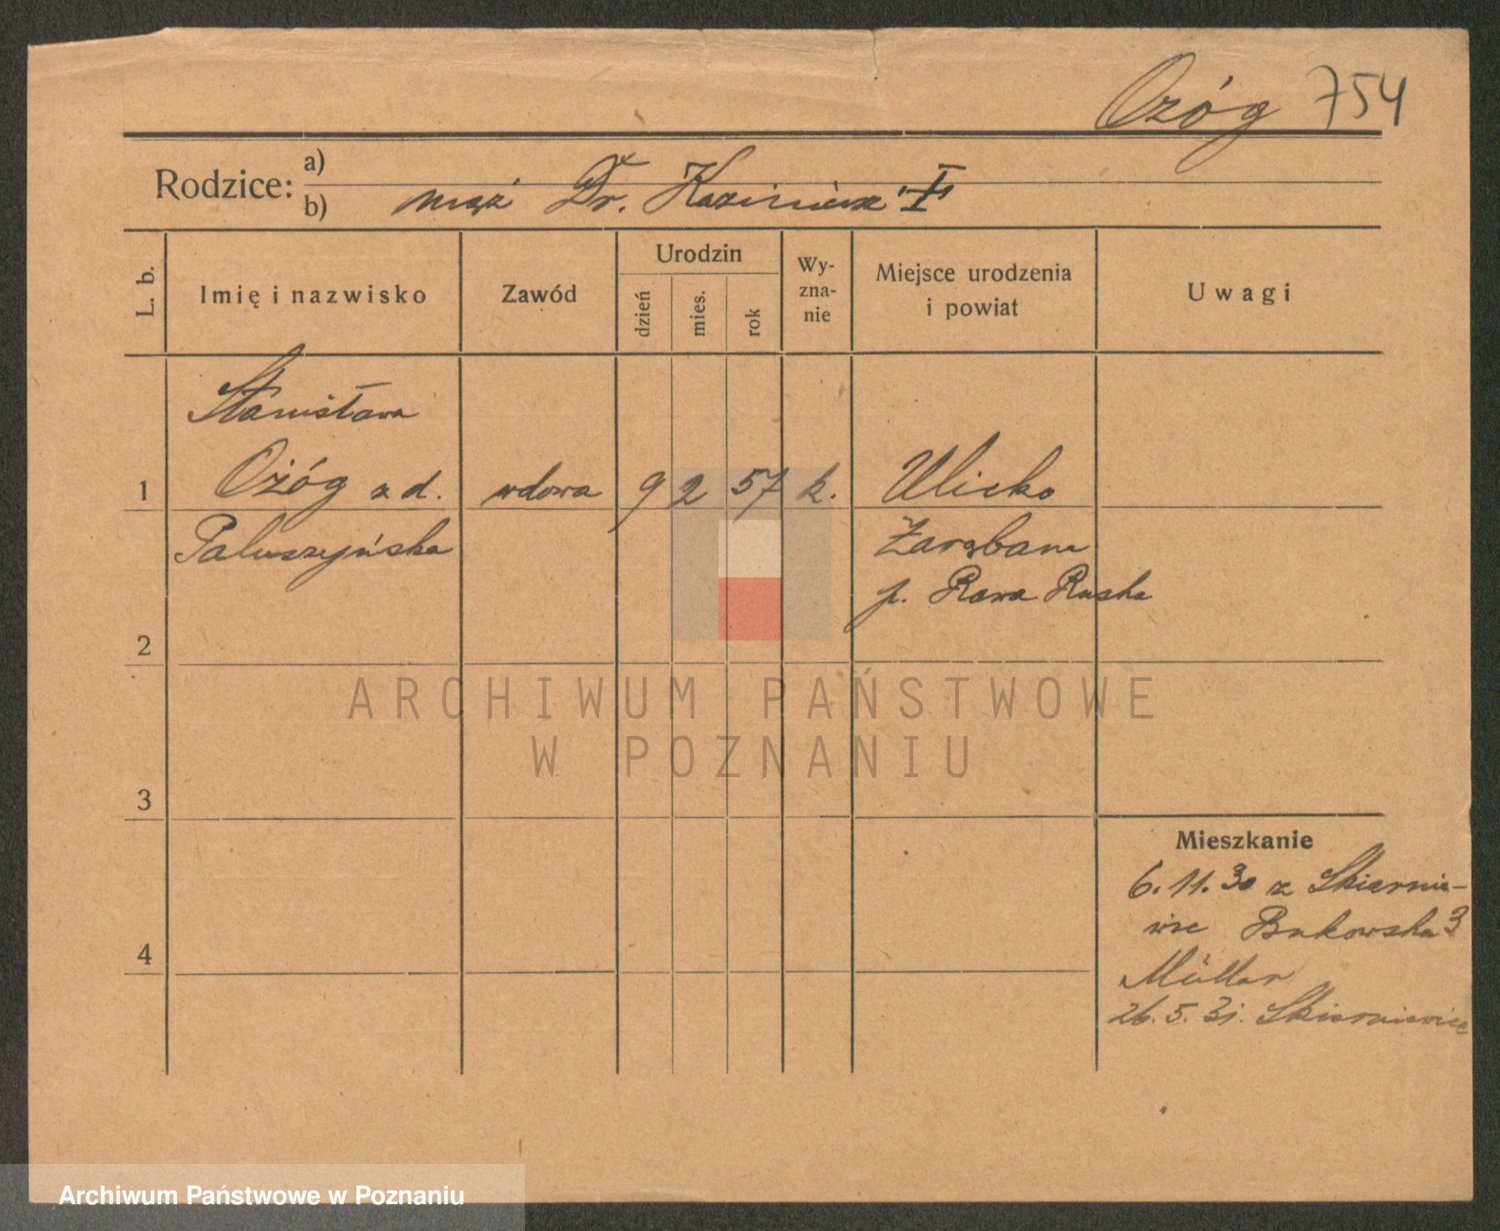 Ożóg 754
Rodzice:
a)
b) mąż Dr. Kazimierz
L. b.
Imię i nazwisko
Zawód
Urodzin
dzień
mies.
rok
Wy-
zna-
nie
Miejsce urodzenia
i powiat
Uwagi
1
Stanisława
Ożóg z d.
Paluszyńska
wdowa
9
2
57
k.
Ulicko
Zarębane
p. Rawa Ruska
2
3
4
Mieszkanie
6.11.30 z Skiernie-
wic Bukowska 3
Müller
26.5.31. Skierniewice
ARCHIWUM PAŃSTWOWE
W POZNANIU
Archiwum Państwowe w Poznaniu